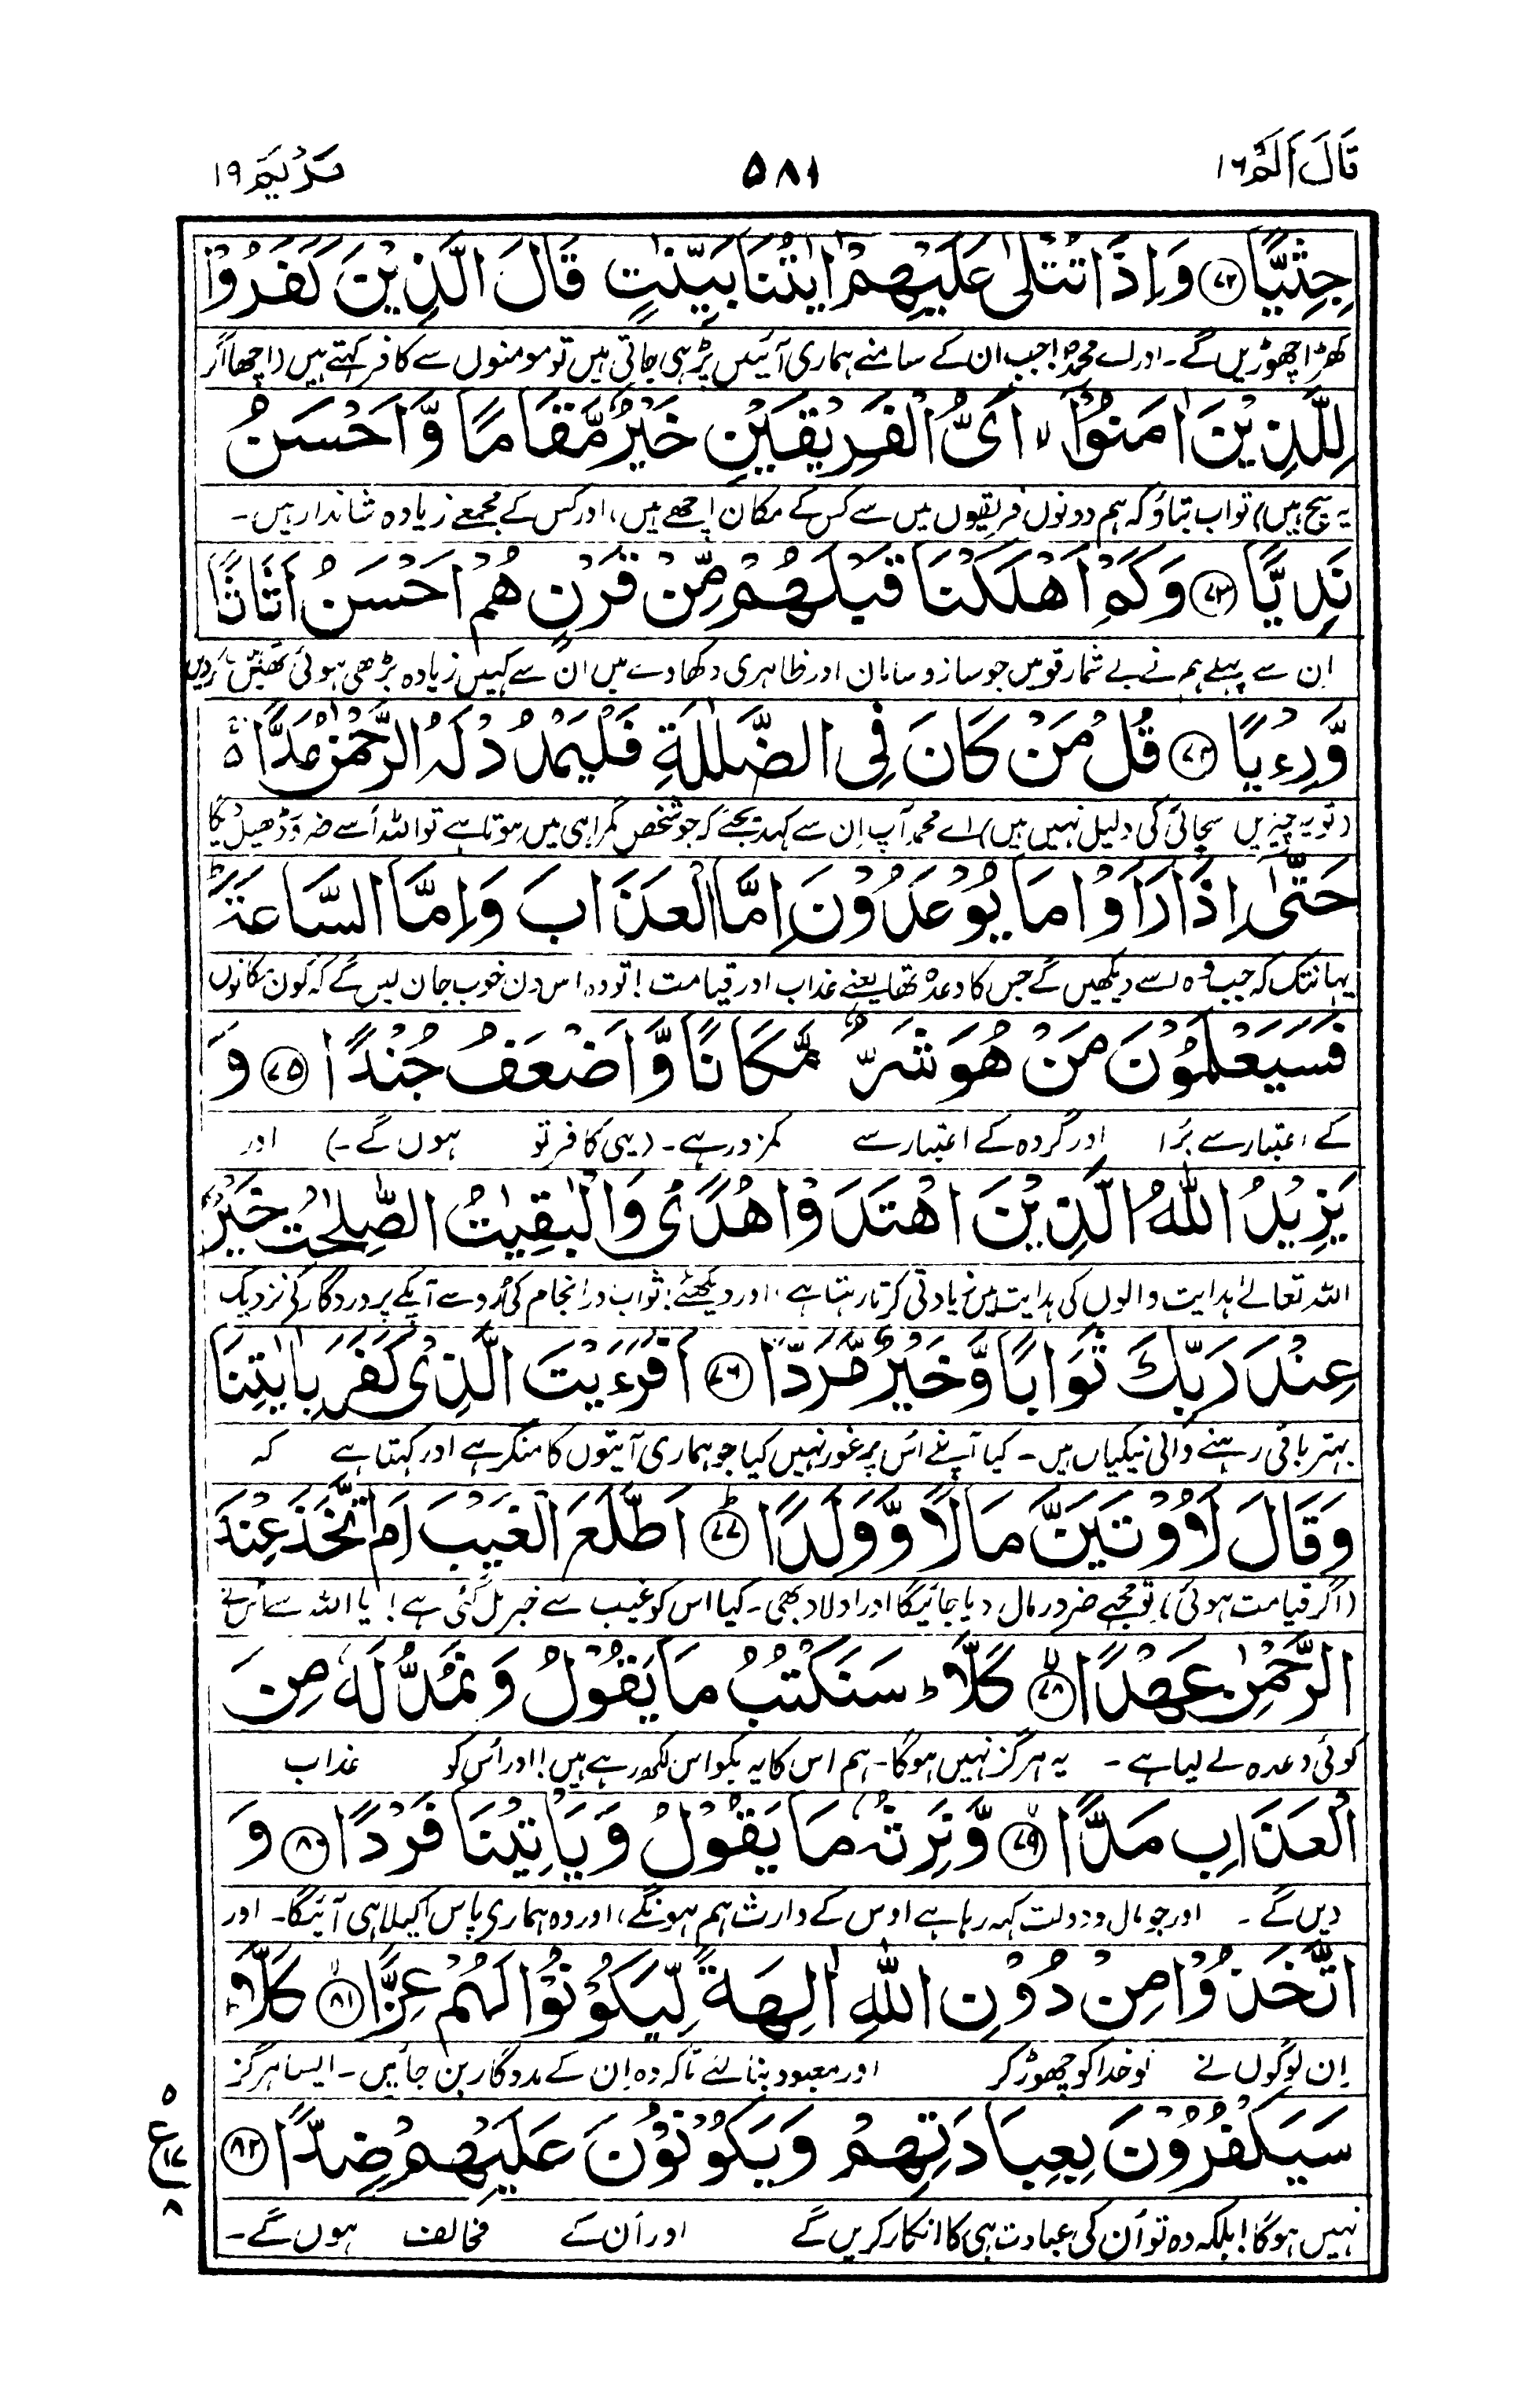 قَالَ اَلَمْ ١٦
٥٨١
مَرْيَم ١٩
جِثِيًّا ﴿٧٢﴾ وَاِذَا تُتْلٰى عَلَيْهِمْ اٰيٰتُنَا بَيِّنٰتٍ قَالَ الَّذِيْنَ كَفَرُوْا
کھڑا چھوڑیں گے۔ اور اے محمدؐ! جب ان کے سامنے ہماری آئتیں پڑہی جاتی ہیں تو مومنوں سے کافر کہتے ہیں (اچھا اگر
لِلَّذِيْنَ اٰمَنُوْۤا ۙ اَيُّ الْفَرِيْقَيْنِ خَيْرٌ مَّقَامًا وَّاَحْسَنُ
یہ سچ ہیں) تو اب بتاؤ کہ ہم دونوں فریقوں میں سے کس کے مکان اچھے ہیں، اور کس کے مجمعے زیادہ شاندار ہیں۔
نَدِيًّا ﴿٧٣﴾ وَكَمْ اَهْلَكْنَا قَبْلَهُمْ مِّنْ قَرْنٍ هُمْ اَحْسَنُ اَثَاثًا
اِن سے پہلے ہم نے بے شمار قومیں جو ساز و سامان اور ظاہری دکھاوے میں ان سے کہیں زیادہ بڑھی ہوئی تھیں
وَّرِءْيًا ﴿٧٤﴾ قُلْ مَنْ كَانَ فِى الضَّلٰلَةِ فَلْيَمْدُدْ لَهُ الرَّحْمٰنُ مَدًّا ۚ
(تو یہ چیزیں سچائی کی دلیل نہیں ہیں) اے محمد آپ اِن سے کہدیجئے کہ جو شخص گمراہی میں ہوتا ہے تو اللہ اُسے ضرور ڈھیل دیگا
حَتّٰۤى اِذَا رَاَوْا مَا يُوْعَدُوْنَ اِمَّا الْعَذَابَ وَاِمَّا السَّاعَةَ ؕ
یہانتک کہ جب وہ اسے دیکھیں گے جس کا وعدہ تھا یعنے عذاب اور قیامت! تو وہ اس دن خوب جان لیں گے کہ کون مکانوں
فَسَيَعْلَمُوْنَ مَنْ هُوَ شَرٌّ مَّكَانًا وَّاَضْعَفُ جُنْدًا ﴿٧٥﴾ وَ
کے اعتبار سے بُرا اور گروہ کے اعتبار سے کمزور ہے۔ (یہی کافر تو ہوں گے۔) اور
يَزِيْدُ اللّٰهُ الَّذِيْنَ اهْتَدَوْا هُدًى ؕ وَالْبٰقِيٰتُ الصّٰلِحٰتُ خَيْرٌ
اللہ تعالےٰ ہدایت والوں کی ہدایت میں زیادتی کرتا رہتا ہے، اور دیکھئے! ثواب اور انجام کی رُو سے آپکے پروردگار کے نزدیک
عِنْدَ رَبِّكَ ثَوَابًا وَّخَيْرٌ مَّرَدًّا ﴿٧٦﴾ اَفَرَءَيْتَ الَّذِىْ كَفَرَ بِاٰيٰتِنَا
بہتر باقی رہنے والی نیکیاں ہیں۔ کیا آپ نے اُس پر غور نہیں کیا جو ہماری آیتوں کا منکر ہے اور کہتا ہے کہ
وَقَالَ لَاُوْتَيَنَّ مَالًا وَّوَلَدًا ﴿٧٧﴾ؕ اَطَّلَعَ الْغَيْبَ اَمِ اتَّخَذَ عِنْدَ
(اگر قیامت ہوئی)، تو مجھے ضرور مال دیا جائیگا اور اولاد بھی۔ کیا اس کو غیب سے خبر مل گئی ہے! یا اللہ سے اُس نے
الرَّحْمٰنِ عَهْدًا ﴿٧٨﴾ۙ كَلَّا ؕ سَنَكْتُبُ مَا يَقُوْلُ وَنَمُدُّ لَهٗ مِنَ
کوئی وعدہ لے لیا ہے۔ یہ ہرگز نہیں ہوگا۔ ہم اس کا یہ بکواس لکھ رہے ہیں! اور اُس کو عذاب
الْعَذَابِ مَدًّا ﴿٧٩﴾ۙ وَّنَرِثُهٗ مَا يَقُوْلُ وَيَاْتِيْنَا فَرْدًا ﴿٨٠﴾ وَ
دیں گے۔ اور جو مال و دولت کہہ رہا ہے اوس کے وارث ہم ہونگے، اور وہ ہماری پاس اکیلا ہی آئیگا۔ اور
اتَّخَذُوْا مِنْ دُوْنِ اللّٰهِ اٰلِهَةً لِّيَكُوْنُوْا لَهُمْ عِزًّا ﴿٨١﴾ۙ كَلَّا ؕ
اِن لوگوں نے تو خدا کو چھوڑ کر اور معبود بنا لئے تاکہ وہ اِن کے مددگار بن جائیں۔ ایسا ہرگز
سَيَكْفُرُوْنَ بِعِبَادَتِهِمْ وَيَكُوْنُوْنَ عَلَيْهِمْ ضِدًّا ﴿٨٢﴾
٥
ع ١٧
٨
نہیں ہوگا! بلکہ وہ تو اُن کی عبادت ہی کا انکار کریں گے اور اُن کے مخالف ہوں گے۔